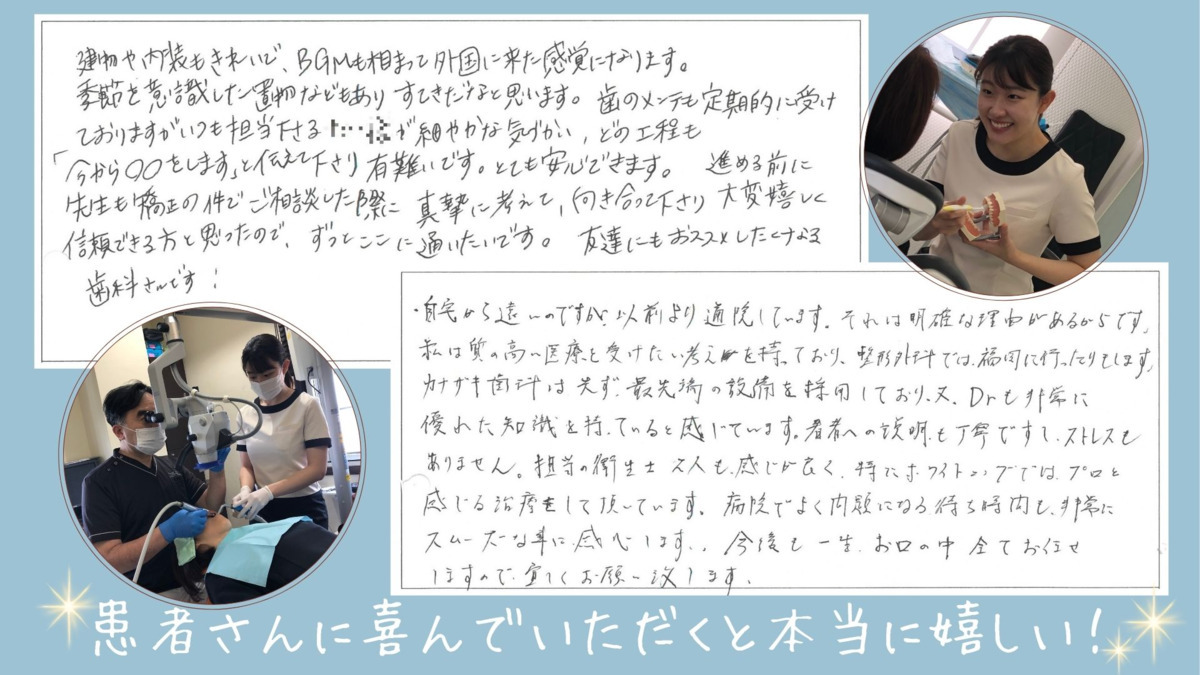 建物や内装もきれいで、BGMも相まって外国に来た感覚になります。
季節を意識した置物などもありすてきだなと思います。歯のメンテも定期的に受け
ておりますがいつも担当下さる が細やかな気づかい、どの工程も
「今から〇〇をします」と伝えて下さり有難いです。とても安心できます。 進める前に
先生も矯正の件でご相談した際に真摯に考えて、向き合って下さり大変嬉しく
信頼できる方と思ったので、ずっとここに通いたいです。 友達にもおススメしたくなる
歯科さんです!
・自宅から遠いのですが、以前より通院しています。それは明確な理由があるからです。
私は質の高い医療を受けたい考えを持っており、整形外科では、福岡に行ったりもします。
カナザキ歯科は先ず、最先端の設備を採用しており、又、Drも非常に
優れた知識を持っていると感じています。患者への説明も丁寧ですし、ストレスも
ありません。担当の衛生士2人も、感じが良く、特にホワイトニングでは、プロと
感じる治療をして頂いています。病院でよく問題になる待ち時間も、非常に
スムーズな事に感心します。今後も一生、お口の中全てお任せ
しますので、宜しくお願い致します。
患者さんに喜んでいただくと本当に嬉しい!